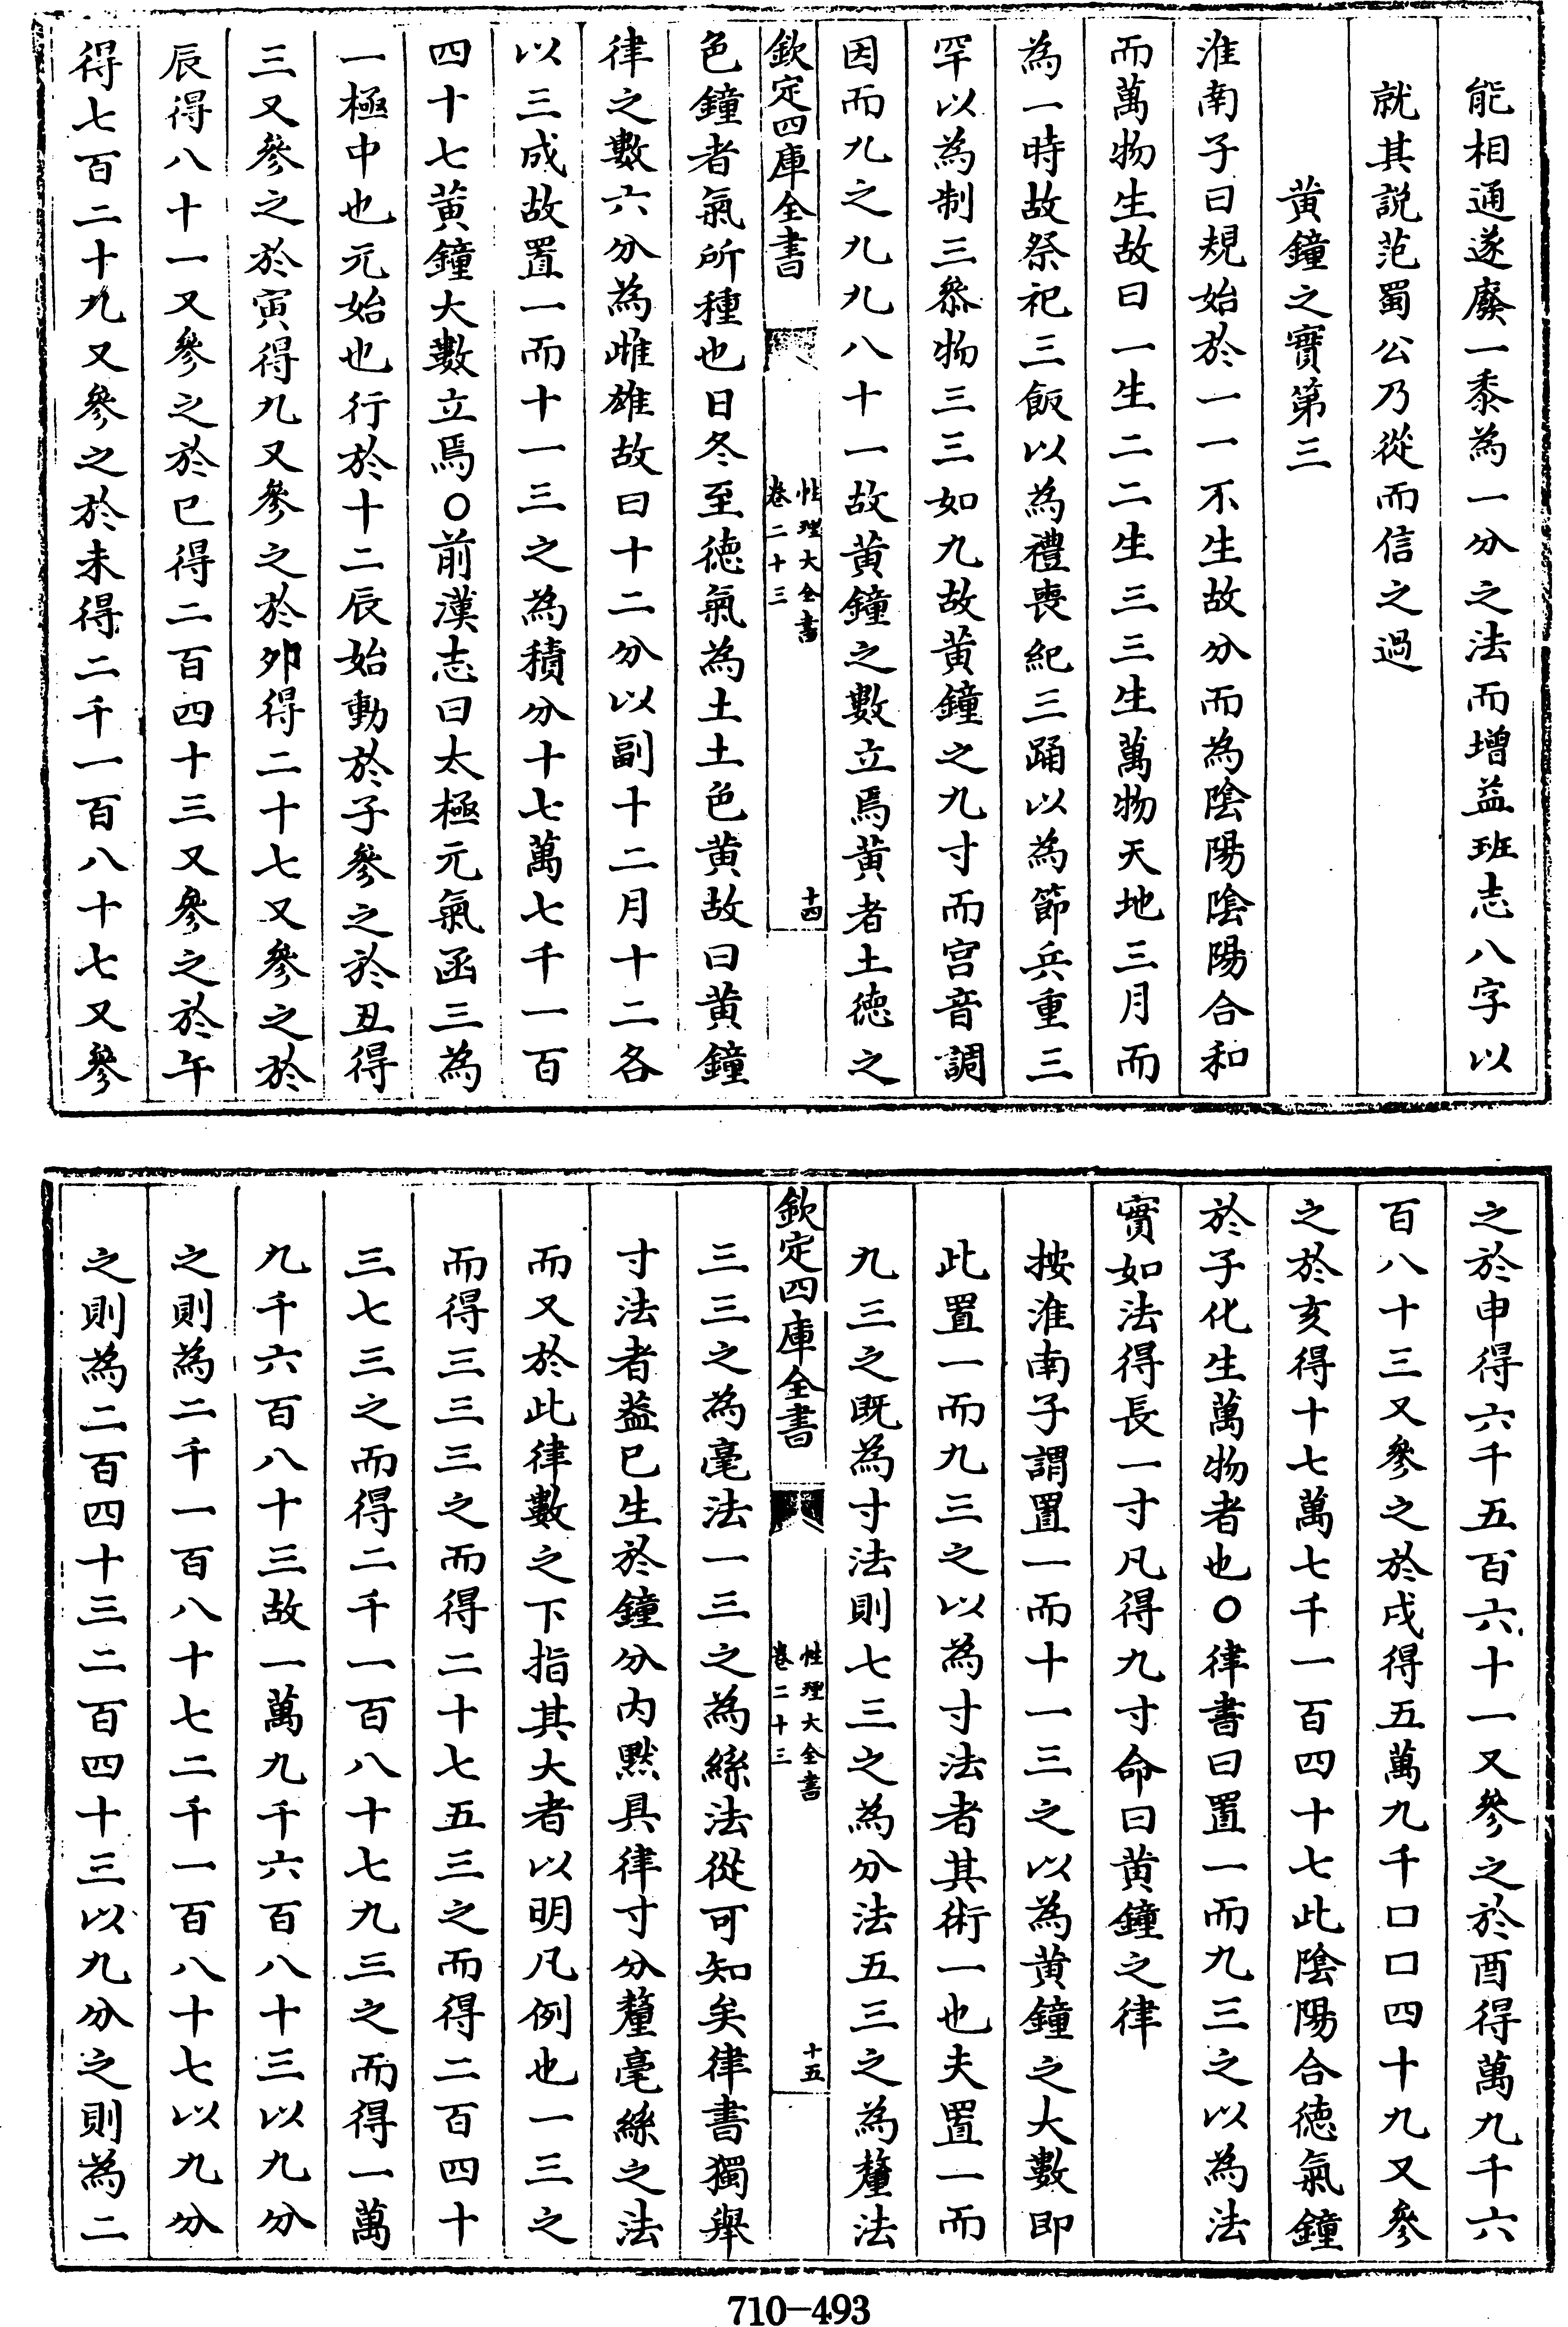 能相通遂廢一黍為一分之法而增益班志八字以
就其説范蜀公乃從而信之過
黄鐘之實第三
淮南子曰規始於一一不生故分而為陰陽陰陽合和
而萬物生故曰一生二二生三三生萬物天地三月而
為一時故祭祀三飯以為禮喪紀三踊以為節兵重三
罕以為制三叅物三三如九故黄鐘之九寸而宫音調
因而九之九九八十一故黄鐘之數立焉黄者土徳之
欽定四庫全書
性理大全書
卷二十三
十四
色鐘者氣所種也日冬至徳氣為土土色黄故曰黄鐘
律之數六分為雌雄故曰十二分以副十二月十二各
以三成故置一而十一三之為積分十七萬七千一百
四十七黄鐘大數立焉○前漢志曰太極元氣函三為
一極中也元始也行於十二辰始動於子參之於丑得
三又參之於寅得九又參之於夘得二十七又參之於
辰得八十一又參之於巳得二百四十三又參之於午
得七百二十九又參之於未得二千一百八十七又參
之於申得六千五百六十一又參之於酉得萬九千六
百八十三又參之於戌得五萬九千口口四十九又參
之於亥得十七萬七千一百四十七此陰陽合徳氣鐘
於子化生萬物者也○律書曰置一而九三之以為法
實如法得長一寸凡得九寸命曰黄鐘之律
按淮南子謂置一而十一三之以為黄鐘之大數即
此置一而九三之以為寸法者其術一也夫置一而
九三之既為寸法則七三之為分法五三之為釐法
欽定四庫全書
性理大全書
卷二十三
十五
三三之為毫法一三之為絲法從可知矣律書獨舉
寸法者葢已生於鐘分内黙具律寸分釐毫絲之法
而又於此律數之下指其大者以明凡例也一三之
而得三三三之而得二十七五三之而得二百四十
三七三之而得二千一百八十七九三之而得一萬
九千六百八十三故一萬九千六百八十三以九分
之則為二千一百八十七二千一百八十七以九分
之則為二百四十三二百四十三以九分之則為二
710-493